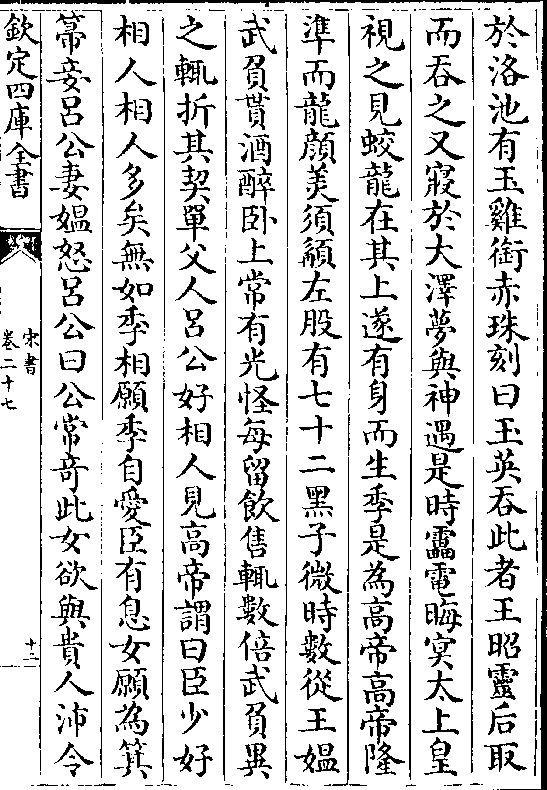 於洛池有玉雞銜赤珠刻曰玉英吞此者王昭靈后取
而吞之又寢於大澤夢與神遇是時雷電晦冥太上皇
視之見蛟龍在其上遂有身而生季是為高帝高帝隆
準而龍顔美須髯左股有七十二黑子微時數從王媼
武負貰酒醉卧上常有光怪每留飲售輙數倍武負異
之輙折其契單父人呂公好相人見高帝謂曰臣少好
相人相人多矣無如季相願季自愛臣有息女願為箕
箒妾呂公妻媼怒呂公曰公常竒此女欲與貴人沛令
欽定四庫全書
宋書
卷二十七
十二